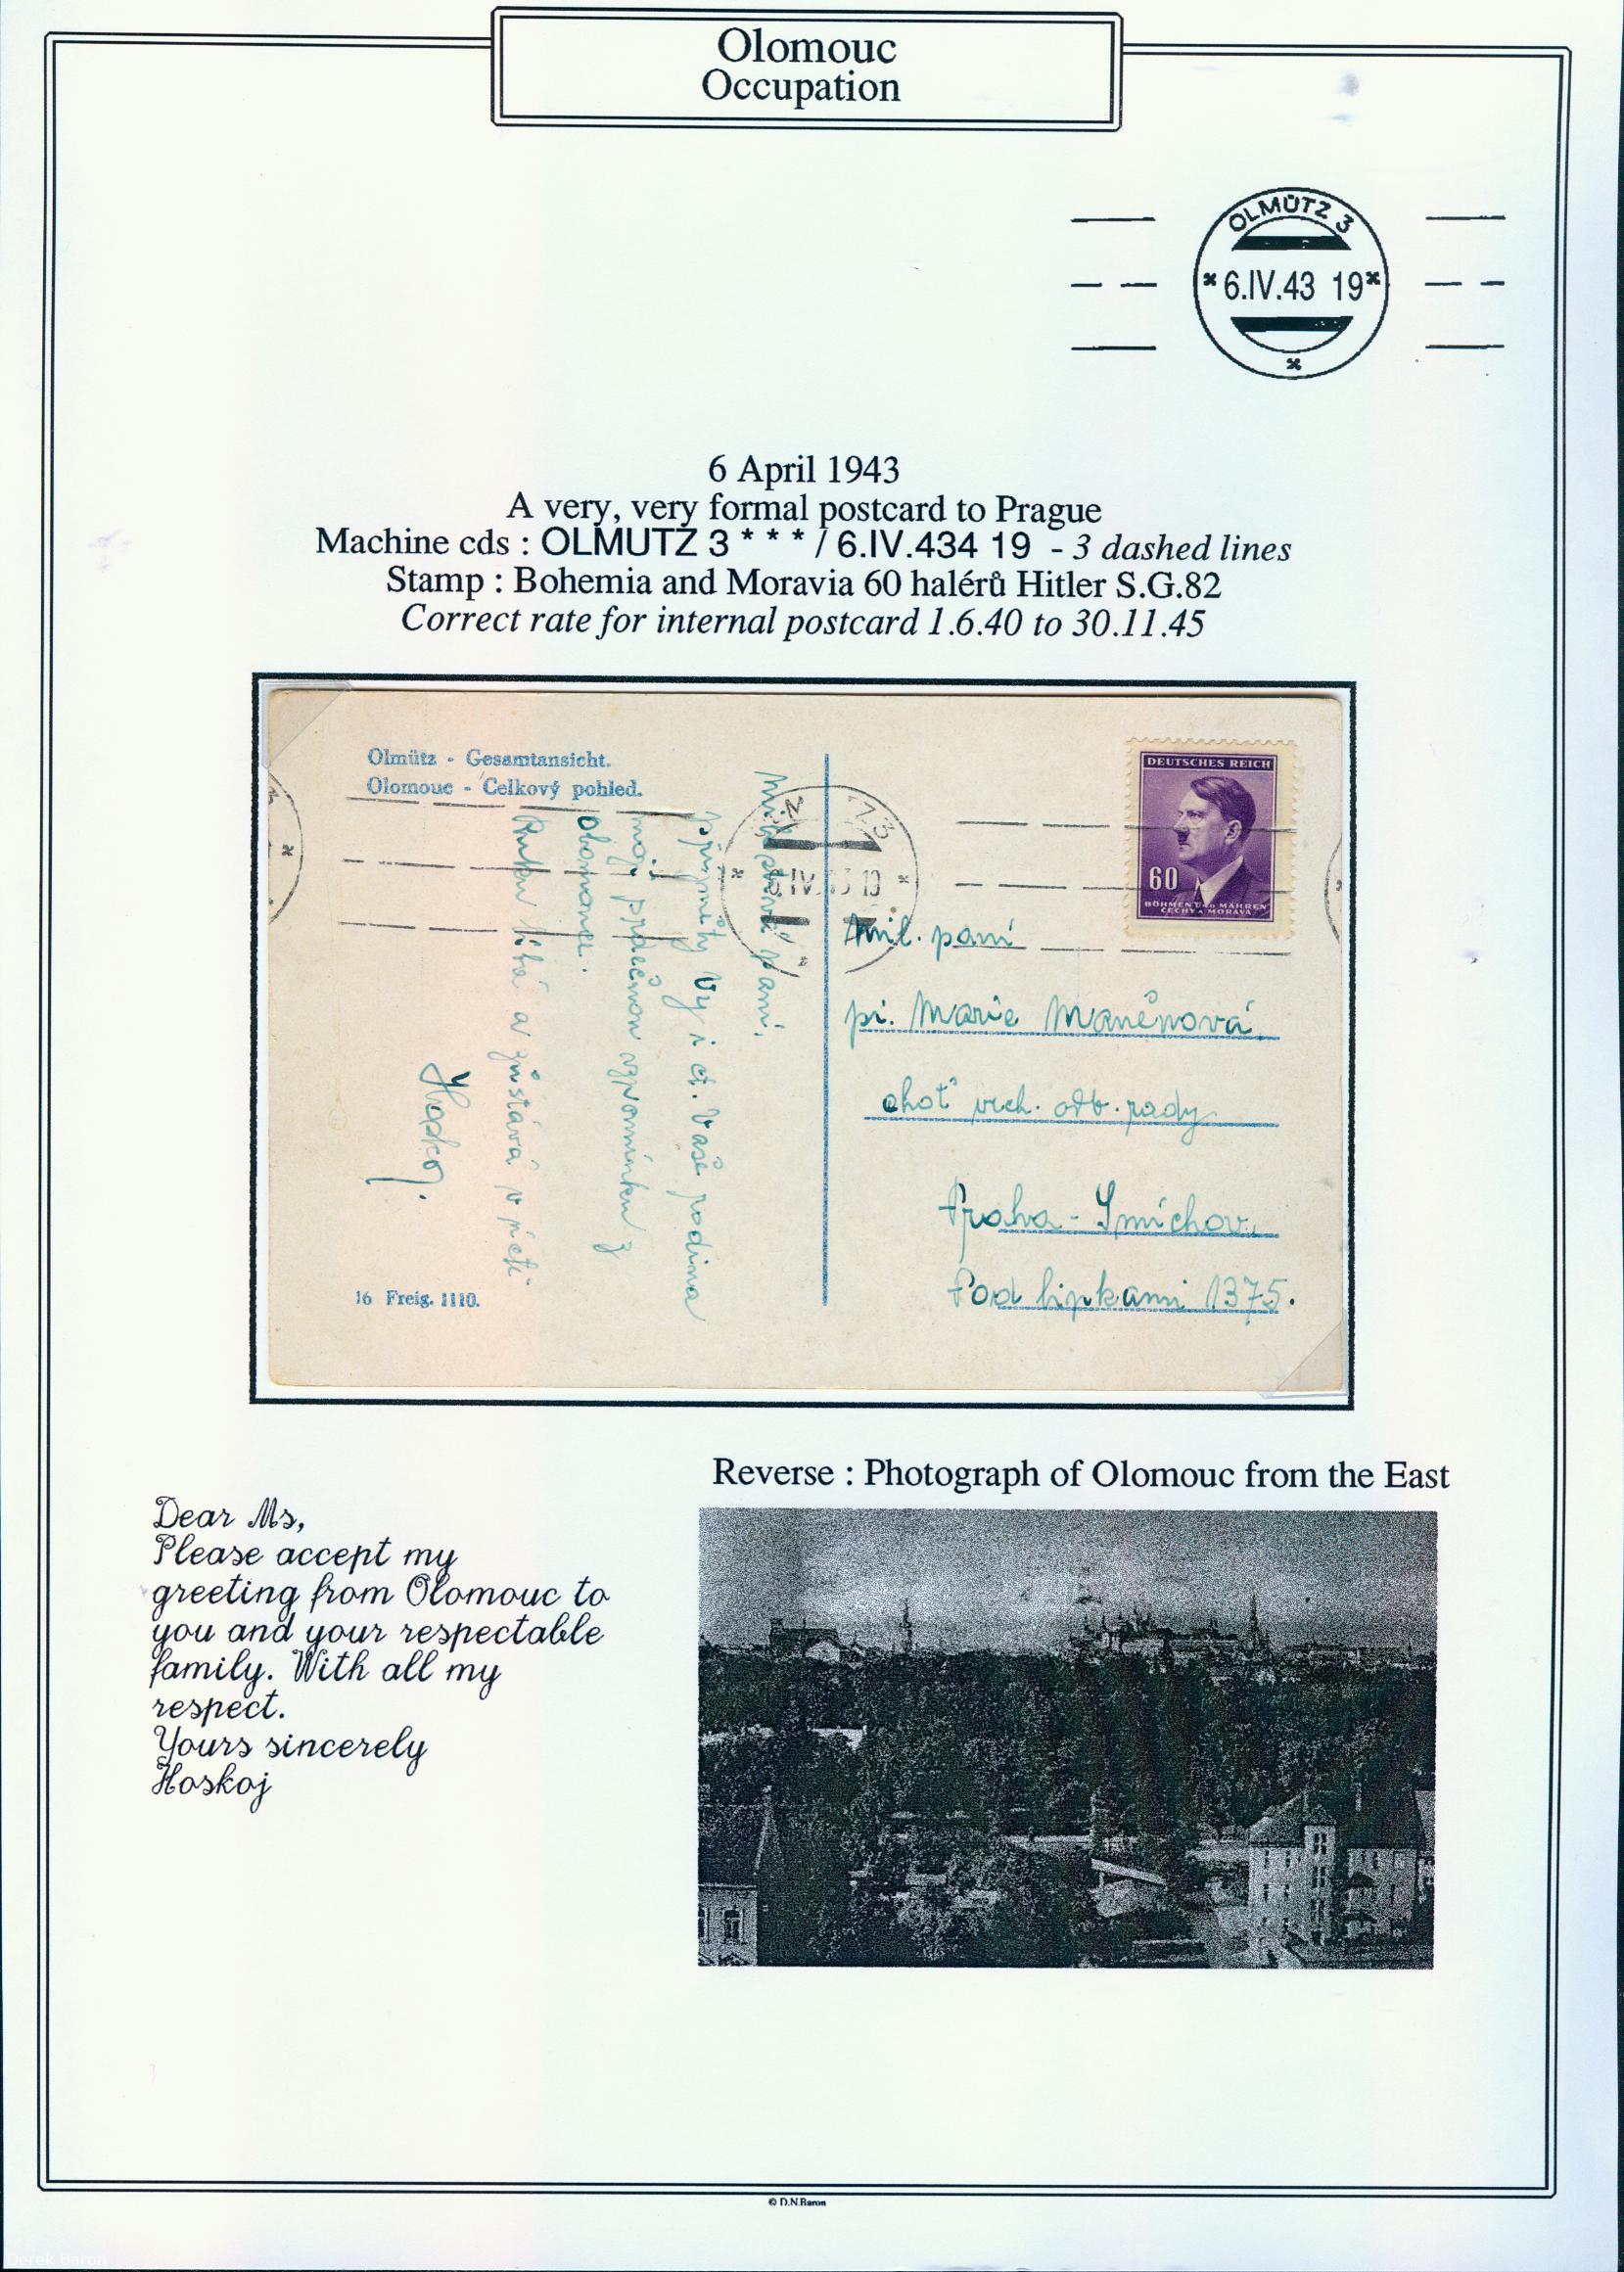 Olomouc
Occupation
OLMÜTZ 3
* 6.IV.43 19 *
*
6 April 1943
A very, very formal postcard to Prague
Machine cds : OLMUTZ 3 * * * / 6.IV.434 19 - 3 dashed lines
Stamp : Bohemia and Moravia 60 halérů Hitler S.G.82
Correct rate for internal postcard 1.6.40 to 30.11.45
Olmütz - Gesamtansicht.
Olomouc - Celkový pohled.
DEUTSCHES REICH
60
BÖHMEN UND MÄHREN
ČECHY A MORAVA
paní,
přijměty Vy i ct. Vaše rodina
moji srdečnou vzpomínku z
Olomouce.
Ruku líbá a zůstává v úctě
mil. paní
pí. Marie Maněnová
choť vrch. odb. rady
Praha - Smíchov.
Pod lipkami 1375.
16 Freig. 1110.
Reverse : Photograph of Olomouc from the East
Dear Ms,
Please accept my
greeting from Olomouc to
you and your respectable
family. With all my
respect.
Yours sincerely
Hoskoj
© D.N.Baron
Derek Baron